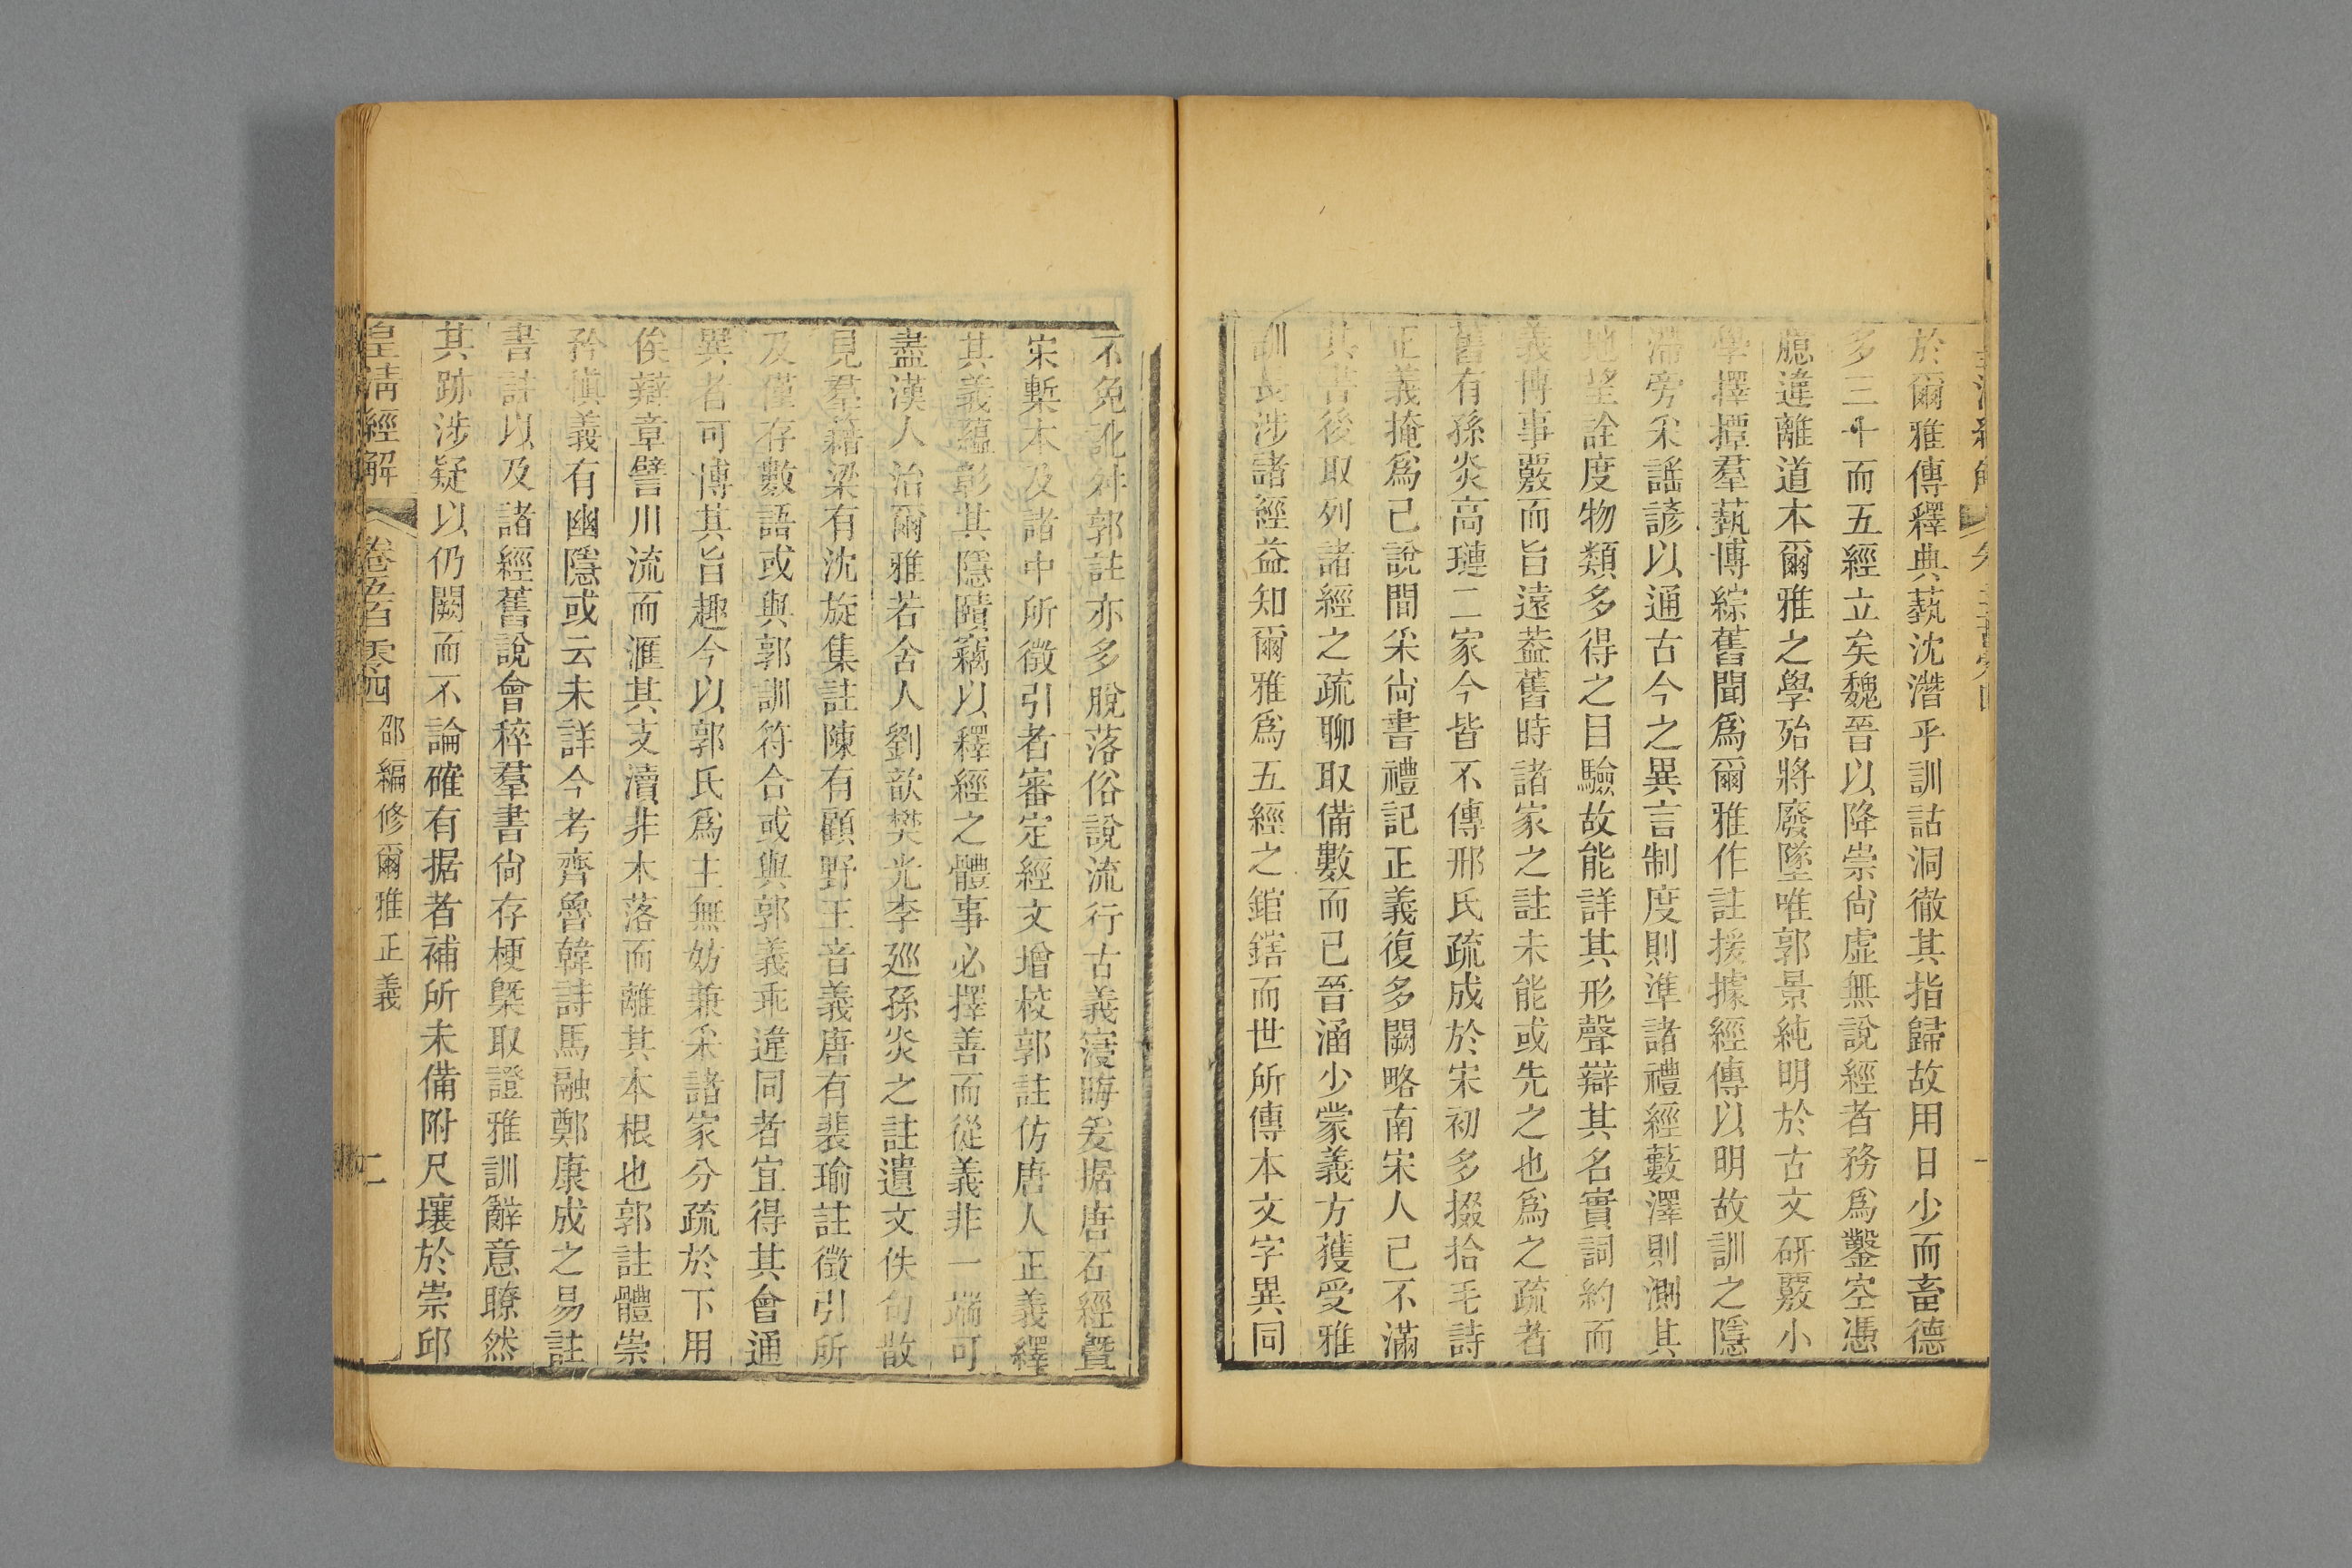 於爾雅傳釋典藝沈潛乎訓詁洞徹其指歸故用日少而畜德
多三十而五經立矣魏晉以降崇尙虛無說經者務爲鑿空憑
臆違離道本爾雅之學殆將廢墜唯郭景純明於古文硏覈小
學擇撢羣藝博綜舊聞爲爾雅作註援據經傳以明故訓之隱
滯旁采謠諺以通古今之異言制度則準諸禮經藪澤則測其
地望詮度物類多得之目驗故能詳其形聲辯其名實詞約而
義博事覈而旨遠葢舊時諸家之註未能或先之也爲之疏者
舊有孫炎高璉二家今皆不傳邢氏疏成於宋初多掇拾毛詩
正義掩爲己說閒采尙書禮記正義復多闕略南宋人已不滿
其書後取列諸經之疏聊取備數而已晉涵少蒙義方獲受雅
訓長涉諸經益知爾雅爲五經之錧鎋而世所傳本文字異同
不免訛舛郭註亦多脫落俗說流行古義寖晦爰据唐石經曁
宋槧本及諸中所徵引者審定經文增校郭註仿唐人正義繹
其義蘊彰其隱賾竊以釋經之體事必擇善而從義非一端可
盡漢人治爾雅若舍人劉歆樊光李廵孫炎之註遺文佚句散
見羣籍梁有沈旋集註陳有顧野王音義唐有裴瑜註徵引所
及僅存數語或與郭訓符合或與郭義乖違同者宜得其會通
異者可博其旨趣今以郭氏爲主無妨兼采諸家分疏於下用
俟辯章譬川流而滙其支瀆非木落而離其本根也郭註體崇
矜愼義有幽隱或云未詳今考齊魯韓詩馬融鄭康成之易註
書註以及諸經舊說會稡羣書尙存梗槩取證雅訓辭意瞭然
其跡涉疑以仍闕而不論確有据者補所未備附尺壤於崇邱
皇淸經解 卷五百零四 邵編修爾雅正義 二